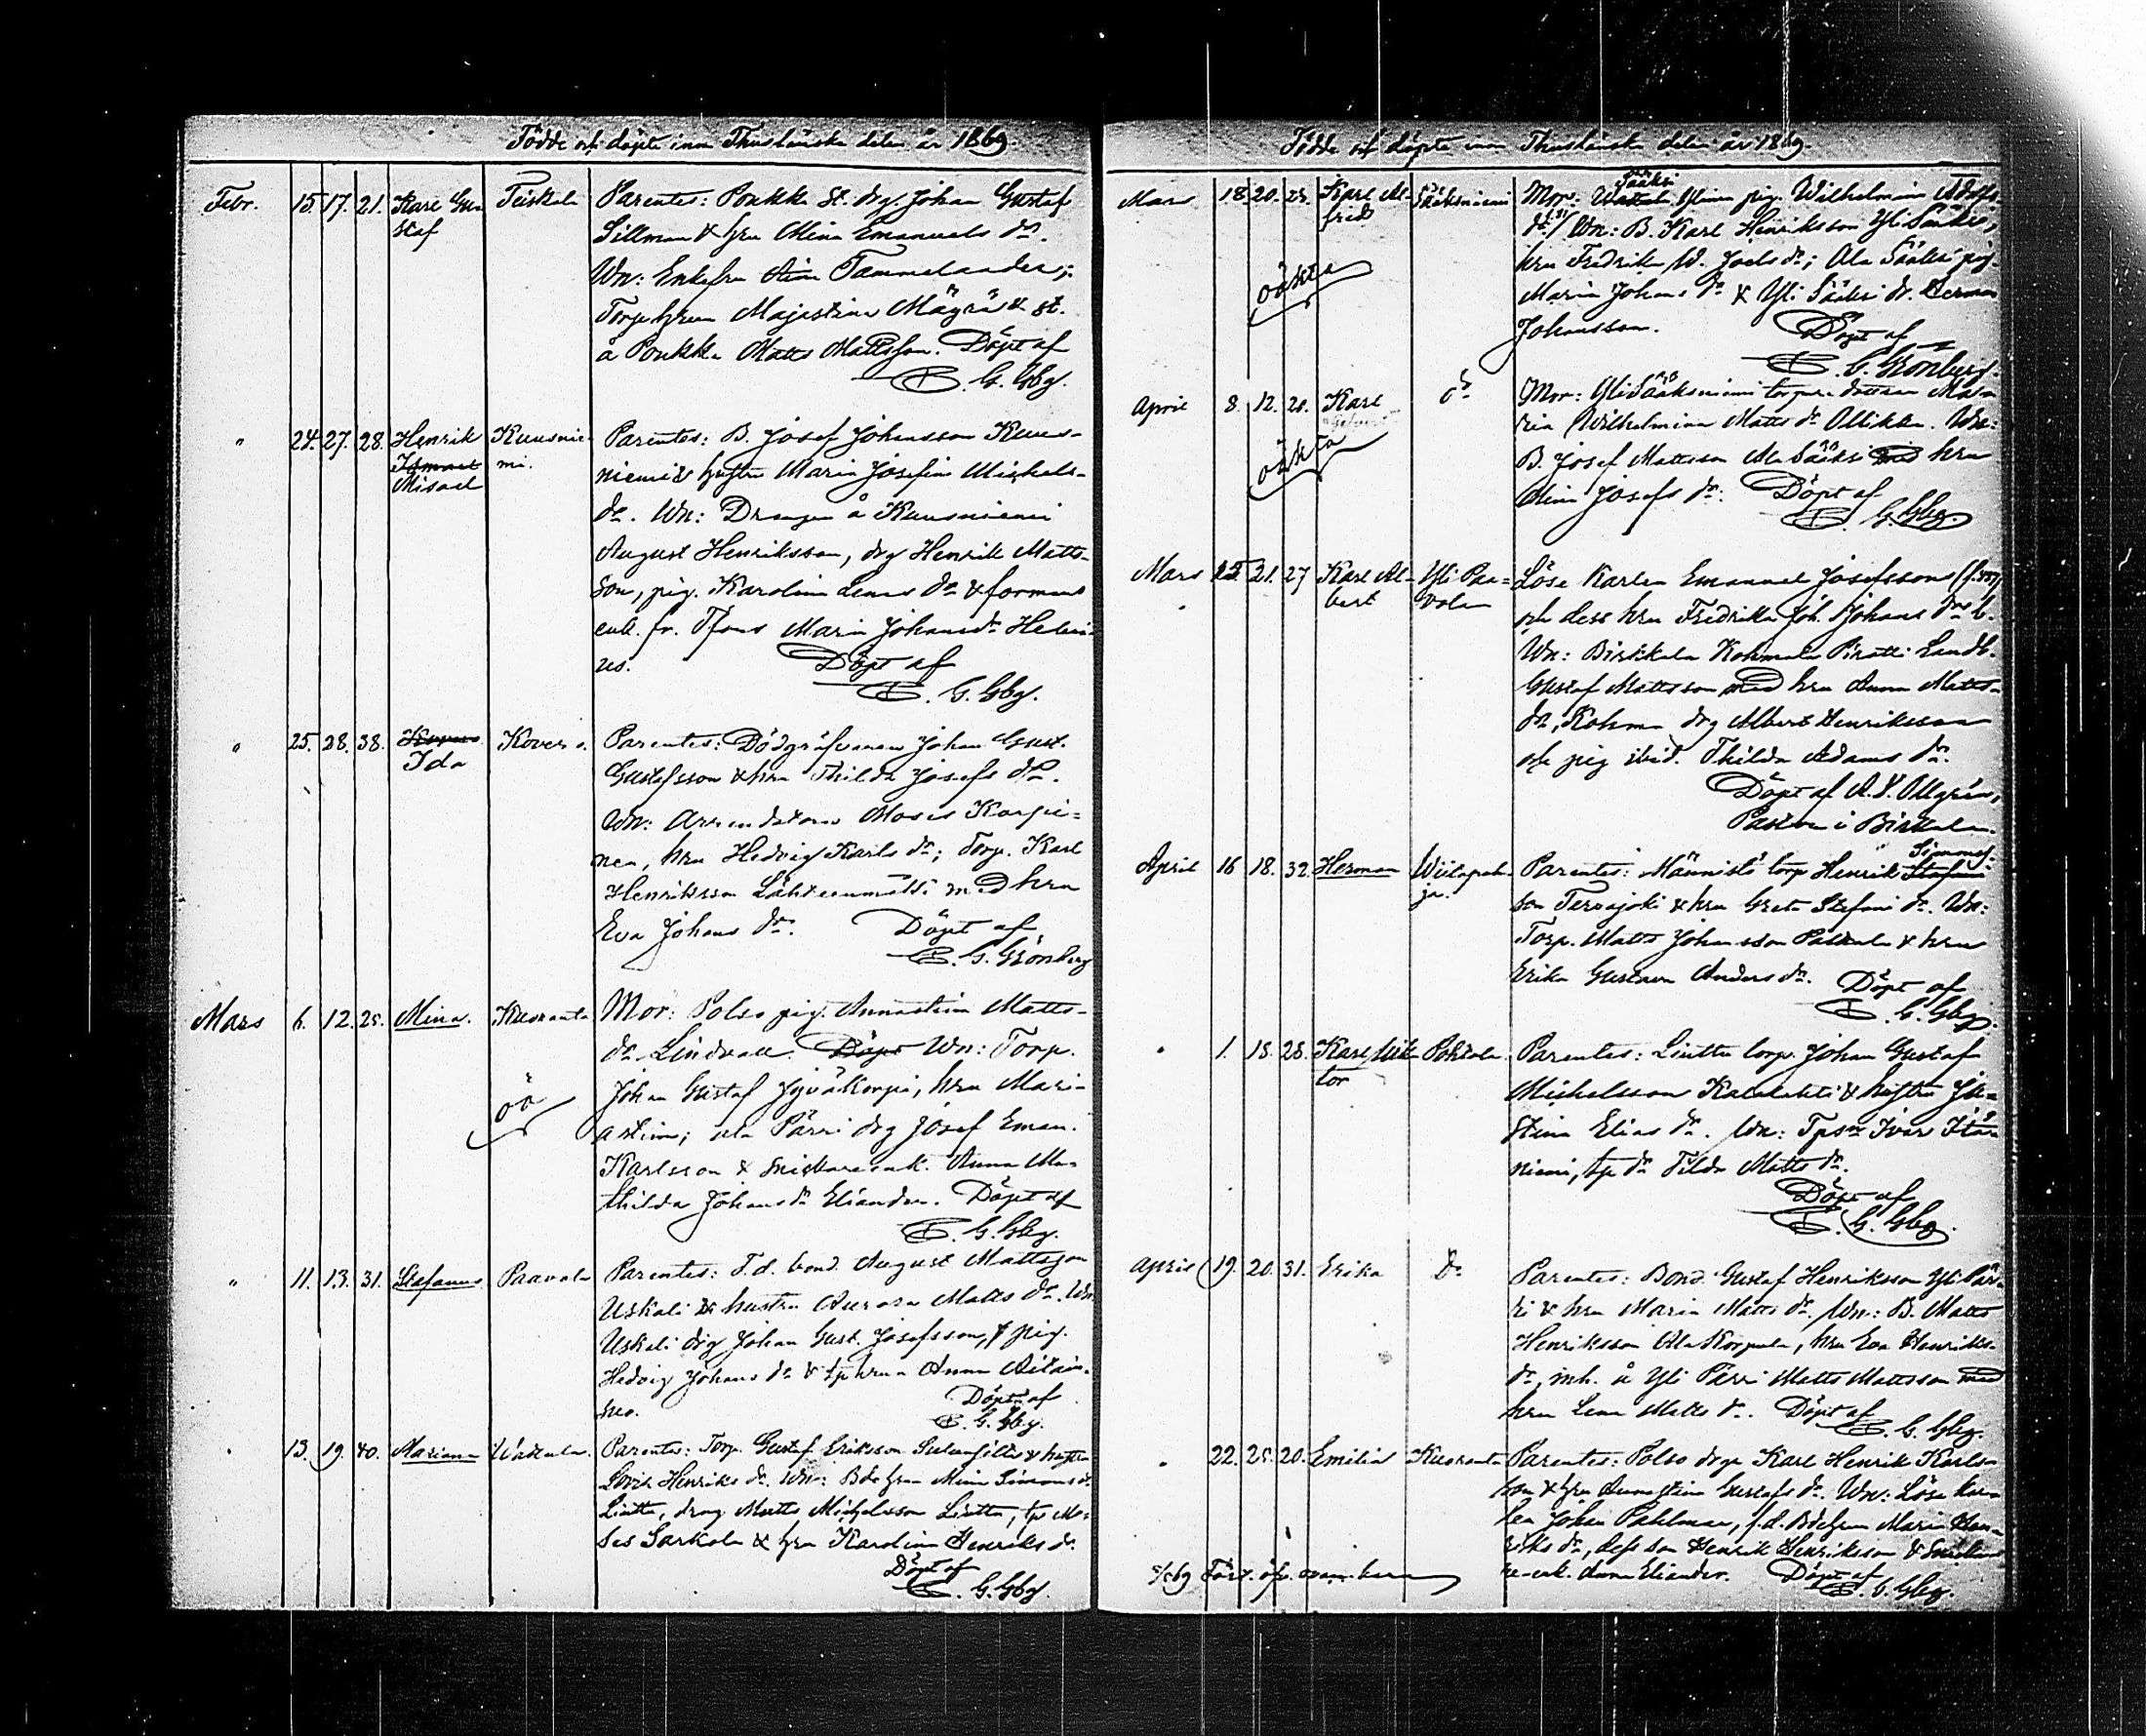 Födde och döpte inom Thuslänska delen år 1869.
Febr. 15. 17. 21. Karl Gus Teiskola Parentes: Poukka st. drg. Johan Gustaf
staf Sillman & hru Mina Emanuels dr.
Wn: Enkefru Tammelander;
Torp hrun Majastina Mägrä & st.
å Poukka Matts Mattsson. Döpt af
G. Gbg.
" 24. 27. 28. Henrik Kuusnie- Parentes: B. Josef Johansson Kuus-
Misael mi. niemi & hustru Maria Josefina Michels-
dr. Wn: Drengen å Kuusniemi
August Henriksson, drg Henrik Matts-
son, pig. Karolina Lenas dr & formans
enk. fr. Maria Johansdr Heleni-
us. Döpt af
G. Gbg.
" 25. 28. 38. Kovero. Parentes: Dödgräfvaren Johan Gust.
Ida Gustafsson & hru Thilda Josefs dr.
Wn: Arrendatorn Moses Karpi-
nen, hru Hedvig Karls dr; Torp. Karl
Henriksson Lähteenmäki med hru
Eva Johans dr. Döpt af
G. Grönberg
Mars 6. 12. 25. Mina. Kuoranta Mor: Polso pig. Annastina Matts-
dr Lindvall. Döpt Wn: Torp.
Johan Gustaf Jyväkorpi, hru Mari-
oä astina; ala Pärri drg Josef Eman.
Karlsson & snickareenk. Anna Ma-
thilda Johans dr Eliander. Döpt af
G. Gbg.
" 11. 13. 31. Stefanus Paavola Parentes: F.d. bond. August Mattsson
Uskali & hustru Aurora Matts dr. Wn
Uskali drg Johan Gust. Josefsson, & pig.
Hedvig Johans dr & tp hrun Anna
Döpt af
G. Gbg.
13. 19. 40. Mariana Wakkala. Parentes: Torp. Gustaf Eriksson & hustru
Lovisa Henriks dr. Wn: Bdehrun Mina Simons dr
Liuttu, dreng Matts Michelsson Liuttu, tp Mo-
ses Sarkola & hru Karolina Henriks dr.
Döpt af
G. Gbg.
Födde och döpte inom Thuslänska delen år 1869.
Mars 18 20. 25. Karl Al- Sääksniemi Mor: Sääksi pig. Wilhelmina Adolfs
fred dr. / Wn: B. Karl Henriksson Yli Sääksi,
hru Fredrika W. Joels dr; Ala Sääksi pig.
oäkta Maria Johans dr & Yli Sääksi dr. Herman
Johansson. Döpt af
G. Grönberg
April 8. 12. 20. Karl dr Mor: Yli Sääksniemi torpare dottren Ma-
ria Wilhelmina Matts dr Ollikka. Wn:
oäkta B. Josef Mattsson Ala Sääksi med hru
Mina Josefs dr. Döpt af
G. Gbg.
Mars 15 21. 27 Karl Al- Yli Paa- Löse Karlen Emanuel Josefsson
bert vola och dess hru Fredrika Joh. Johans dr
Wn: Birkkala Kohmala Piratti Landb.
Gustaf Mattsson med hru Anna Matts-
dr, Kohma drg Albert Henriksson
och pig ibid. Thilda Adams dr.
Döpt af A. V. Allgrén,
Pastor i Birkkala.
April 16 18. 32. Herman Wiitapoh- Parentes: Männistö torp Henrik Simons-
ja. son Tervajoki & hru Greta Stefani dr. Wn:
Torp. Matts Johansson Pakkala & hru
Erika Gustava Anders dr. Döpt af
G. Gbg.
" 1. 18. 28. Karl Vik- Pohjola. Parentes: Liuttu torp. Johan Gustaf
tor Michelsson Karalahti & hustru Ju-
stina Elias dr. Wn: Tpsn Ivar Itä-
niemi, tp dr Tilda Matts dr.
Döpt af
G. Gbg.
April 19. 20. 31. Erika Dr Parentes: Bond. Gustaf Henriksson Yli Pär-
ri & hru Maria Matts dr. Wn: B. Matts
Henriksson Ala Korpula, hru Eva Henriks-
dr, inh. å Yli Pärri Matts Mattsson med
hru Lena Matts dr. Döpt af
G. Gbg.
" 22. 25. 20. Emilia Kuoranta Parentes: Polso drge Karl Henrik Karls-
son & hru Annastina Gustafs dr. Wn: Löse kar-
len Johan Pahlman, f.d. Bdehrun Maria Hen-
riks dr, dess son Henrik Henriksson & snicka-
re-enk. Anna Eliander. Döpt af
G. Gbg.